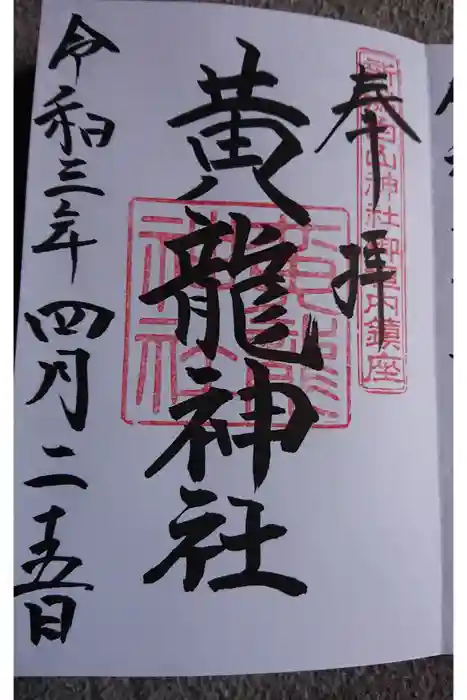 奉拝
新潟白山神社御境内鎮座
黄龍神社
黄龍神社
令和三年四月二十五日